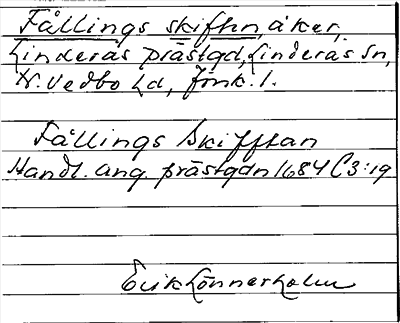 Fållings skiften, åker,
Linderås prästgd, Linderås sn,
N. Vedbo hd, Jönk. l.
Fållings Skifftan
Handl. ang. prästgdn 1684 C3:19
Erik Lönnerholm